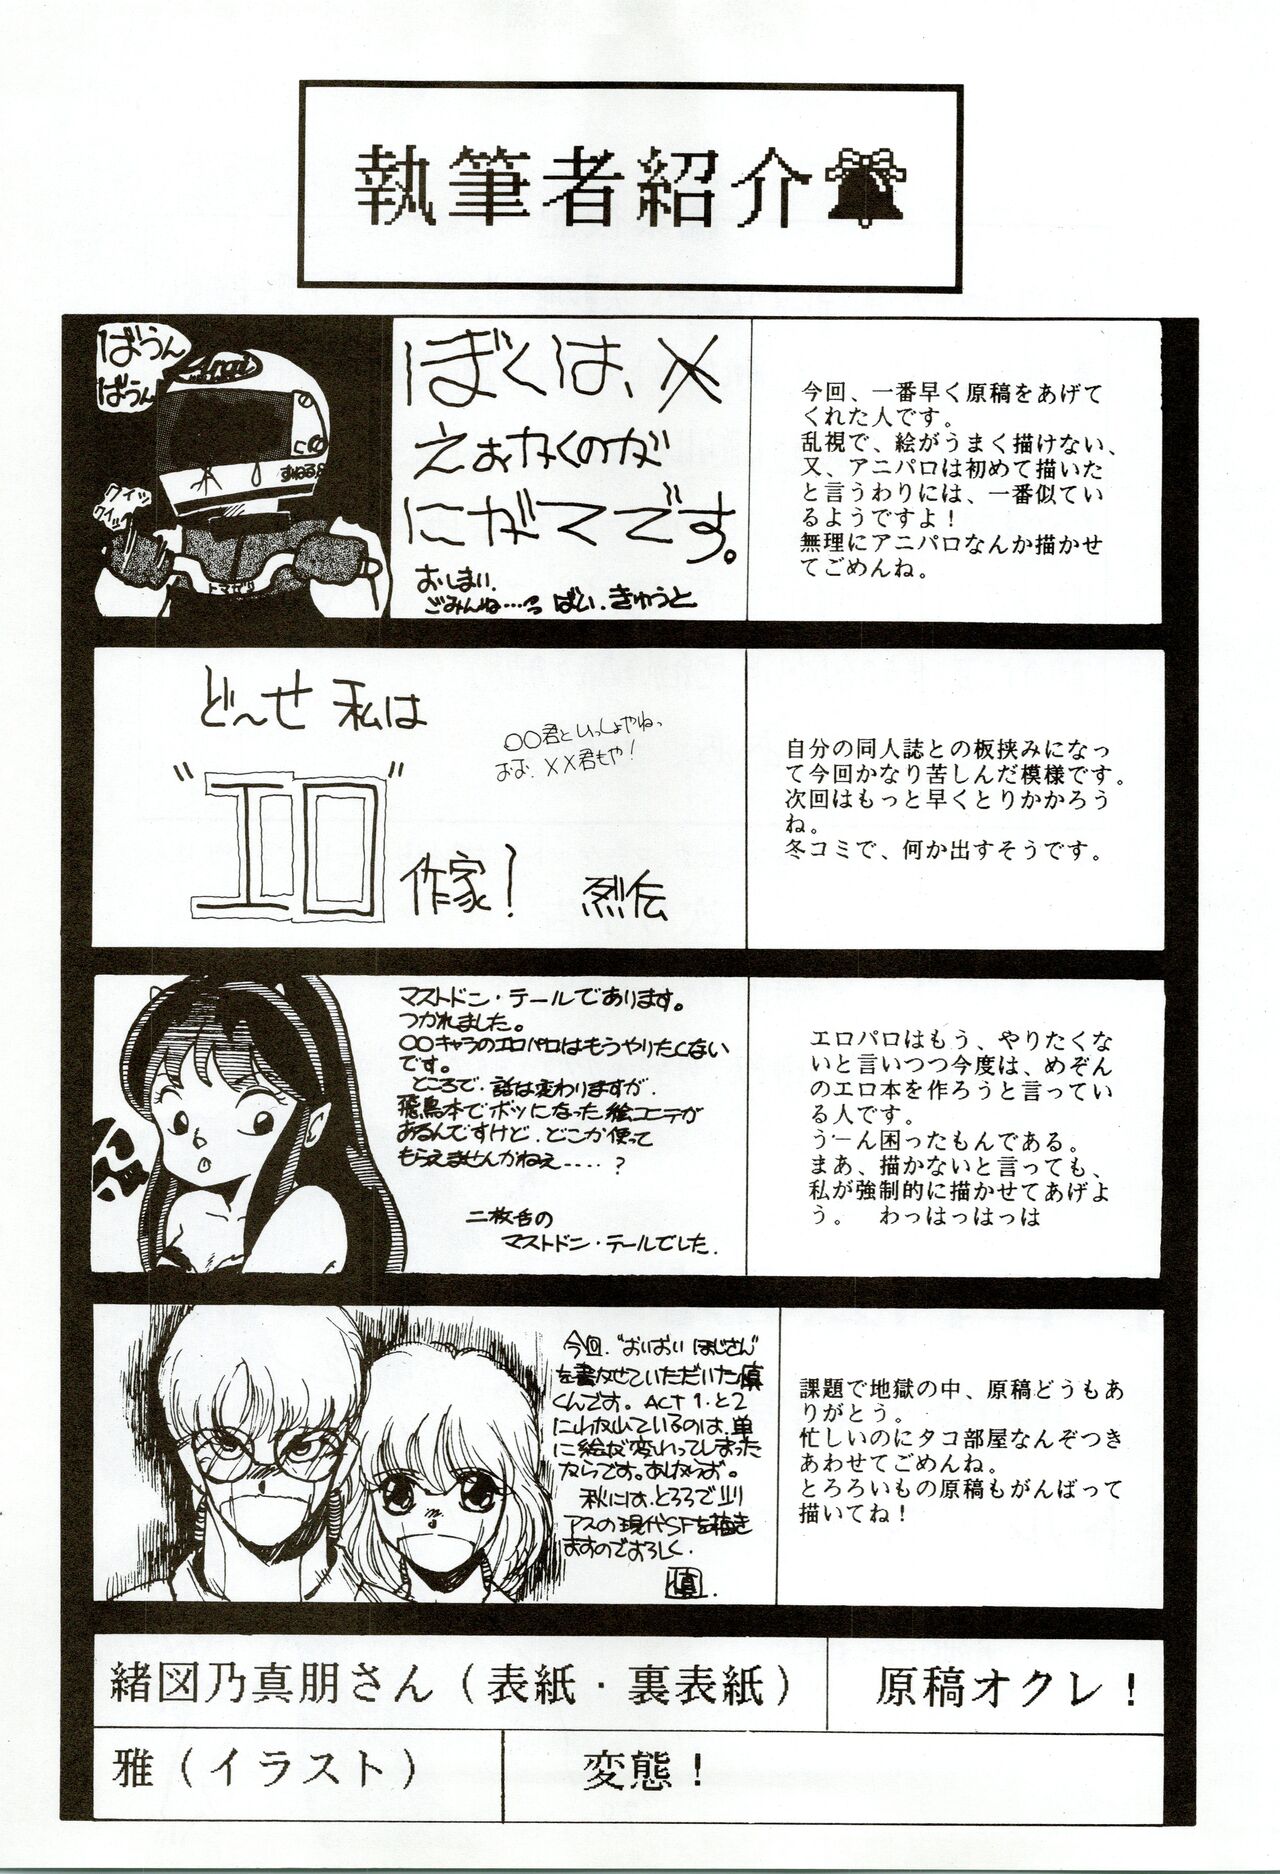 執筆者紹介
ばうん
ばうん
Arai
クイッ
クイッ
トマガリ
ぼくは、
えおかくのが
にがてです。
おしまい。
ごみんね……っ ばい.きゅうと
今回、一番早く原稿をあげて
くれた人です。
乱視で、絵がうまく描けない、
又、アニパロは初めて描いた
と言うわりには、一番似てい
るようですよ！
無理にアニパロなんか描かせ
てごめんね。
ど〜せ 私は
〇〇君といっしょやねっ
おお、××君もや！
"エロ"
作家！ 烈伝
自分の同人誌との板挟みになっ
て今回かなり苦しんだ模様です。
次回はもっと早くとりかかろう
ね。
冬コミで、何か出すそうです。
マストドン・テールであります。
つかれました。
〇〇キャラのエロパロはもうやりたくない
です。
ところで、話は変わりますが、
飛鳥本でボツになった絵コンテが
あるんですけど、どこか使って
もらえませんかねぇ‥‥？
二枚舌の
マストドン・テールでした.
エロパロはもう、やりたくな
いと言いつつ今度は、めぞん
のエロ本を作ろうと言ってい
る人です。
うーん困ったもんである。
まあ、描かないと言っても、
私が強制的に描かせてあげよ
う。 わっはっはっは
今回、"おいおい ほじさん"
を書かせていただいた慎
くんです。ACT 1.と2
に分かれているのは、単
に絵が変わってしまった
からです。あしからず。
秋には、とろろでシリ
アスの現代SFを描き
ますのでよろしく.
慎.
課題で地獄の中、原稿どうもあ
りがとう。
忙しいのにタコ部屋なんぞつき
あわせてごめんね。
とろろいもの原稿もがんばって
描いてね！
緒図乃真朋さん（表紙・裏表紙）
原稿オクレ！
雅（イラスト）
変態！